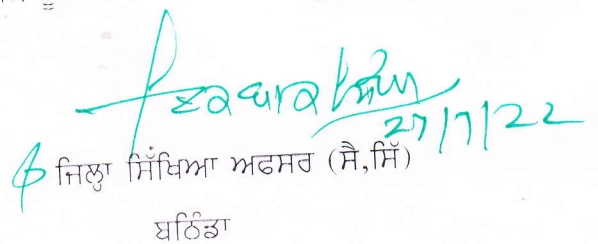 27/7/22
ਜਿਲ੍ਹਾ ਸਿੱਖਿਆ ਅਫਸਰ (ਸੈ,ਸਿੱ)
ਬਠਿੰਡਾ